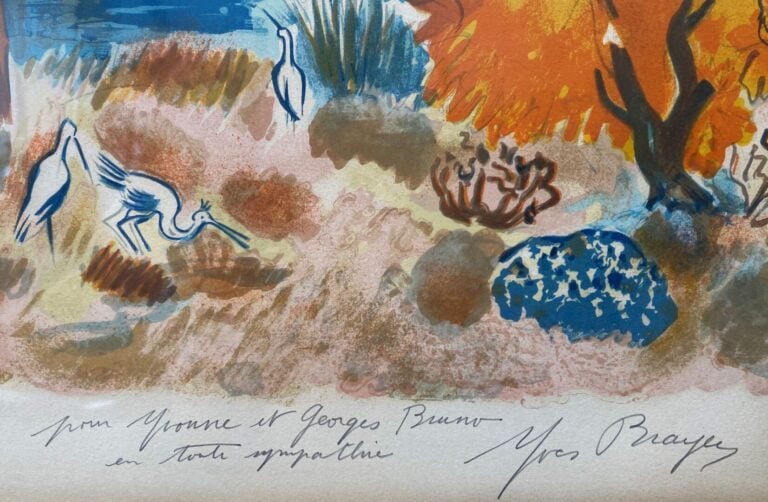 pour Yvonne et Georges Bruno
en toute sympathie
Yves Brayer